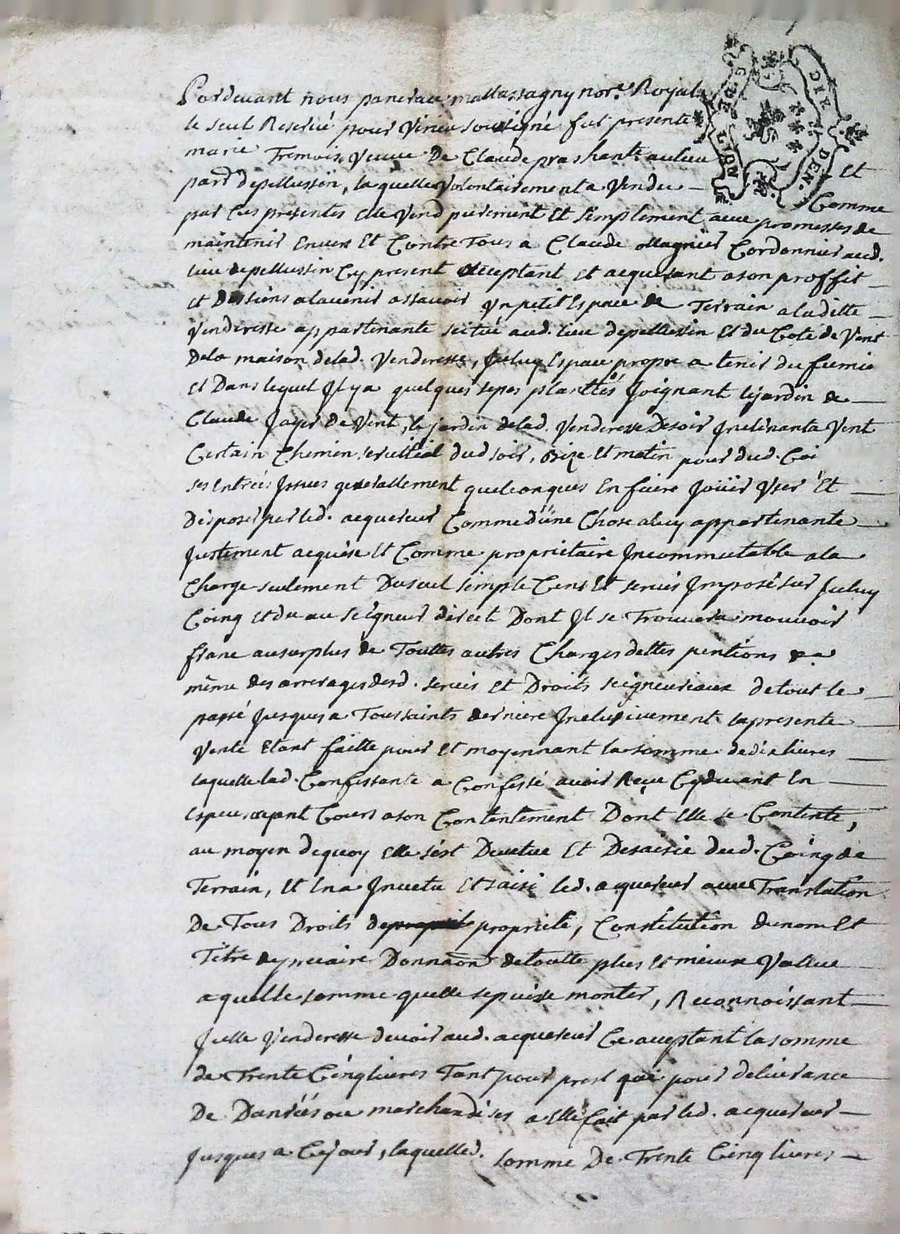 Pardevant nous pancrace mattassagny nore. Royal
le seul Reservé pour Virieu soussigné fut presente
marie Fremois veuve De Claude prashent au lieu
pard. depellussin, laquelle volontairement a Vendu — Et Comme
par Ces presentes elle Vend purement Et simplement avec promesses de
maintenir Envers Et Contre Tous a Claude Magnier Cordonnier aud.
lieu depellussin Cy present acceptant Et acquerant a son proffit
Et Des siens a lavenir assavoir Un petit Espace de Terrain a laditte
Venderesse appartenante scitué aud. lieu depellussin Et du Coté de Vent
De la maison delad. Venderesse, Jceluy Espace propre a tenir du fumié
Et Dans lequel Jl y a quelques seps plantés Joignant le jardin de
Claude Jayer de Vent, le jardin delad. Venderesse De soir Jnclinant a Vent
Certain Chemin dud. soir, Bize Et matin pour dud.
ses Entrées Jssues generallement quelconques En faire Joüir User Et
Disposer par led. acquereur Comme d'une Chose a luy appartenante
Justement acquise Et Comme proprietaire Jncommutable a la
Charge seulement Du seul simple Cens Et servis Jmposé sur Jceluy
Coing Et du au seigneur direct Dont Jl se Trouvera mouvoir
franc au surplus de Touttes autres Charges dettes pentions de
même des arrerages desd. servis Et Droits seigneuriaux de tout le
passé Jusques a Toussaints derniere Jnclusivement lapresente
Vente Etant faitte pour Et moyennant la somme de dix livres
laquelle lad. Confessante a Confessé avoir Reçue Cydevant En
Especes ayant Cours a son Contentement Dont Elle se Contente,
au moyen dequoy Elle sest Devetue Et Desaisie dud. Coing de
Terrain, Et En a Jnvetu Et saisi led. acquereur avec Translation
De Tous Droits de propriete, Constitution de nom Et
Titre de precaire Donnaon de toutte plus Et mieux Vallue
a quelle somme quelle se puisse monter, Reconnoissant
Jcelle Venderesse devoir aud. acquereur Ce acceptant la somme
de Trente Cinq livres Tant pour prest que pour delivrance
De Danrées ou marchandises a Elle fait par led. acquereur
Jusques a Cejour, laquelled. somme De Trente Cinq livres